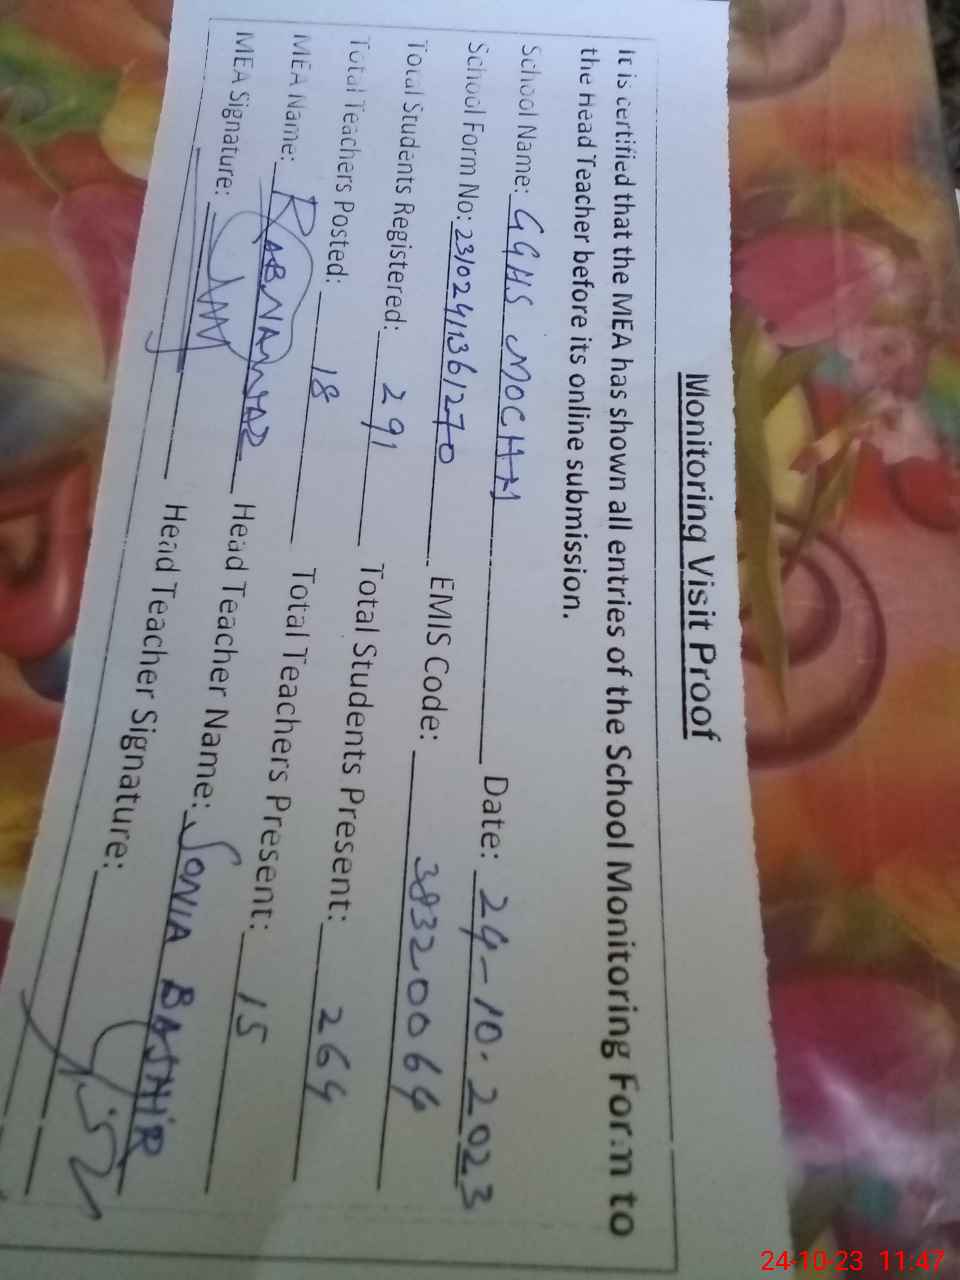 Monitoring Visit Proof
It is certified that the MEA has shown all entries of the School Monitoring Form to
the Head Teacher before its online submission.
School Name: GGHS MOCHH Date: 24-10-2023
School Form No: 2310241361270 EMIS Code: 38320064
Total Students Registered: 291 Total Students Present: 264
Total Teachers Posted: 18 Total Teachers Present: 15
MEA Name: Head Teacher Name: SONIA BASHIR
MEA Signature: Head Teacher Signature:
24-10-23 11:47